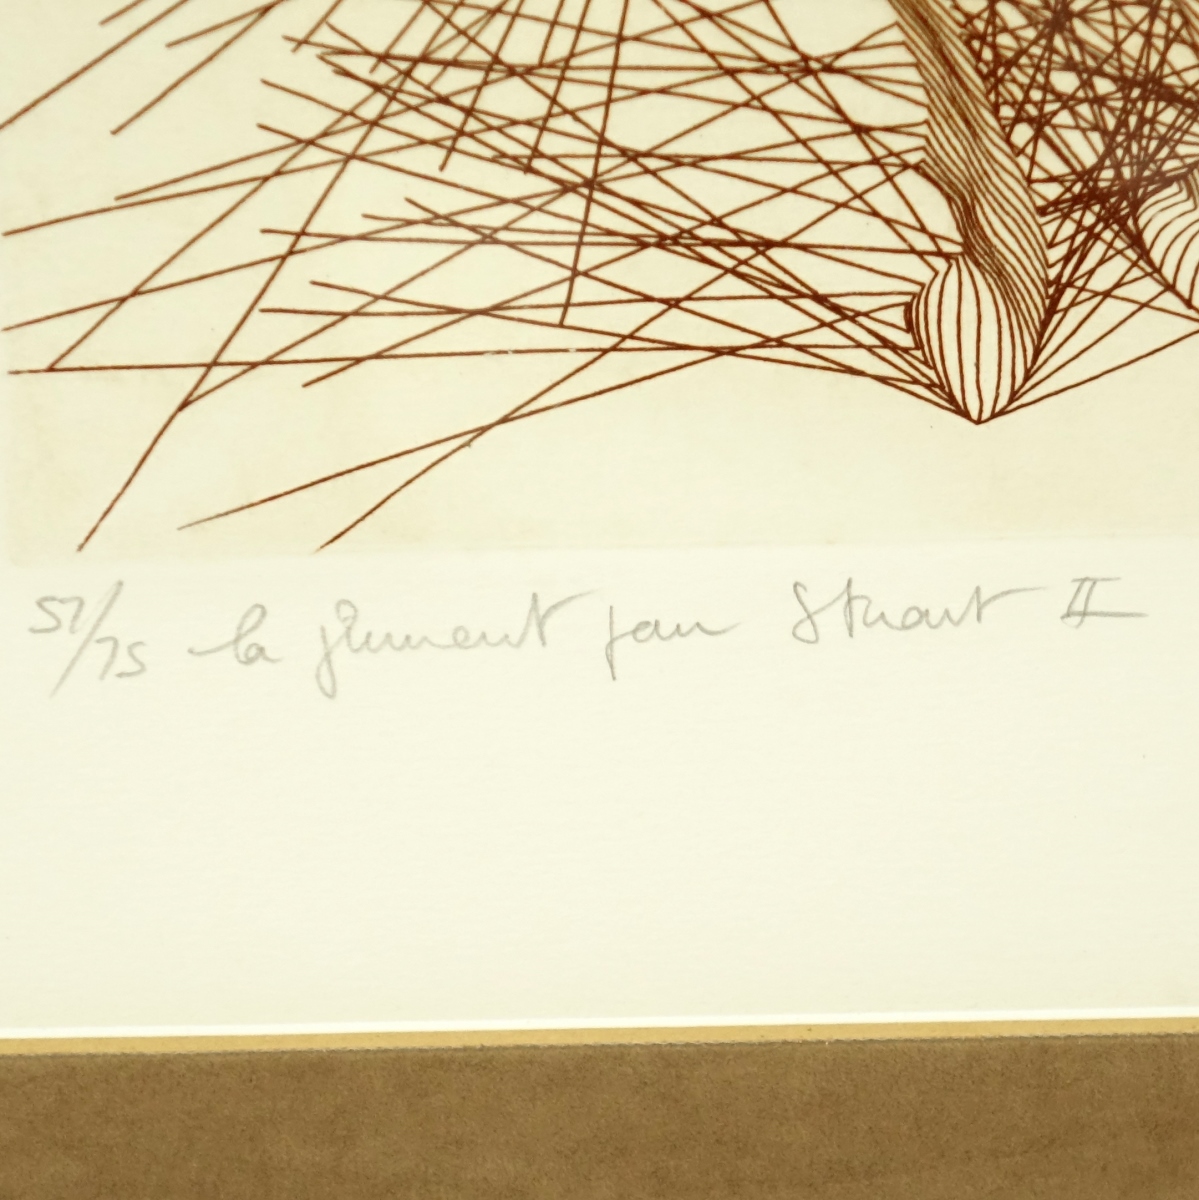 51/75 la jument jam Stuart II